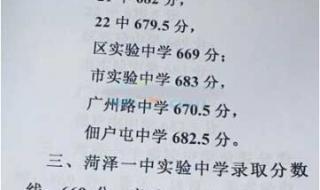 22 中 679.5 分，
区实验中学 669 分；
市实验中学 683 分，
广州路中学 670.5 分，
佃户屯中学 682.5 分。
三、菏泽一中实验中学录取分数